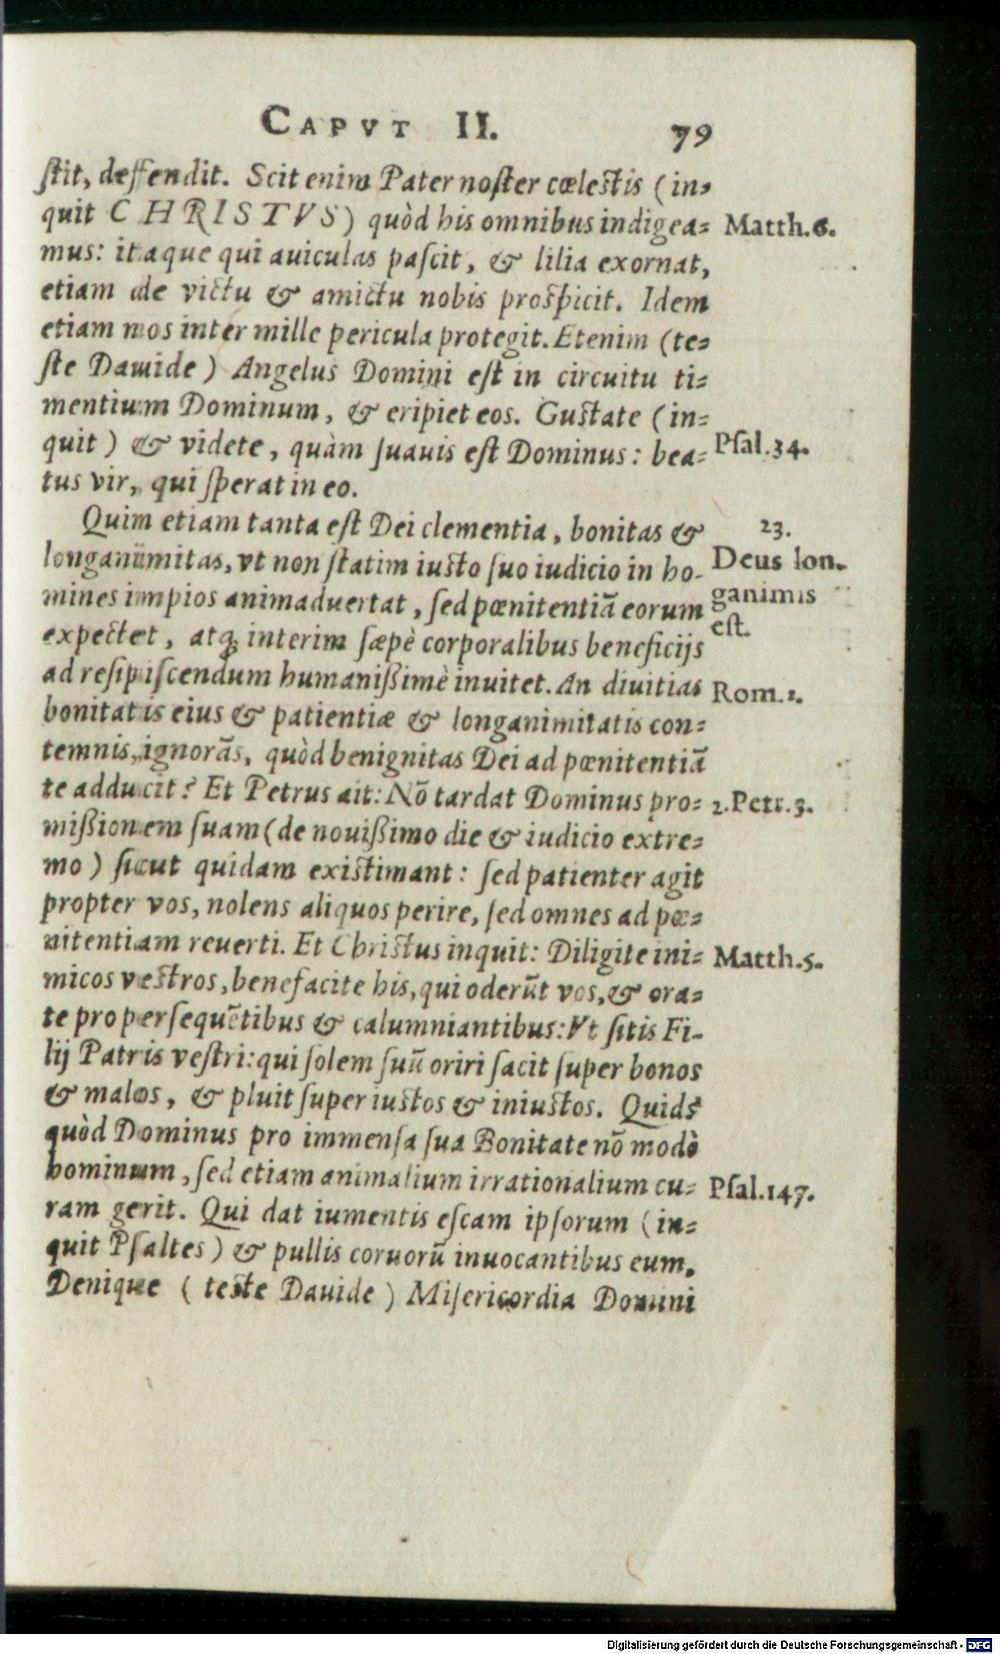 CAPVT II. 79
ſtit, deffendit. Scit enim Pater noſter cœleſtis (in-
quit CHRISTVS) quòd his omnibus indigea-
Matth.6.
mus: itaque qui auiculas paſcit, & lilia exornat,
etiam de victu & amictu nobis proſpicit. Idem
etiam nos inter mille pericula protegit. Etenim (te-
ſte Dauide) Angelus Domini eſt in circuitu ti-
mentium Dominum, & eripiet eos. Guſtate (in-
quit) & videte, quàm ſuauis eſt Dominus: bea-
Pſal.34.
tus vir, qui ſperat in eo.
Quim etiam tanta eſt Dei clementia, bonitas &
23.
longanimitas, vt non ſtatim iuſto ſuo iudicio in ho-
Deus lon-
mines impios animaduertat, ſed pœnitentiã eorum
ganimis
expectet, atq; interim ſæpè corporalibus beneficijs
eſt.
ad reſipiſcendum humanißimè inuitet. An diuitias
Rom.2.
bonitatis eius & patientiæ & longanimitatis con-
temnis, ignorãs, quòd benignitas Dei ad pœnitentiã
te adducit? Et Petrus ait: Nõ tardat Dominus pro-
2.Petr.3.
mißionem ſuam (de nouißimo die & iudicio extre-
mo) ſicut quidam exiſtimant: ſed patienter agit
propter vos, nolens aliquos perire, ſed omnes ad pœ-
nitentiam reuerti. Et Chriſtus inquit: Diligite ini-
Matth.5.
micos veſtros, benefacite his, qui oderũt vos, & ora-
te pro perſequẽtibus & calumniantibus: Vt ſitis Fi-
lij Patris veſtri: qui ſolem ſuũ oriri facit ſuper bonos
& malos, & pluit ſuper iuſtos & iniuſtos. Quid?
quòd Dominus pro immenſa ſua Bonitate nõ modò
hominum, ſed etiam animalium irrationalium cu-
Pſal.147.
ram gerit. Qui dat iumentis eſcam ipſorum (in-
quit Pſaltes) & pullis coruorũ inuocantibus eum.
Denique (teſte Dauide) Miſericordia Domini
Digitalisierung gefördert durch die Deutsche Forschungsgemeinschaft - DFG